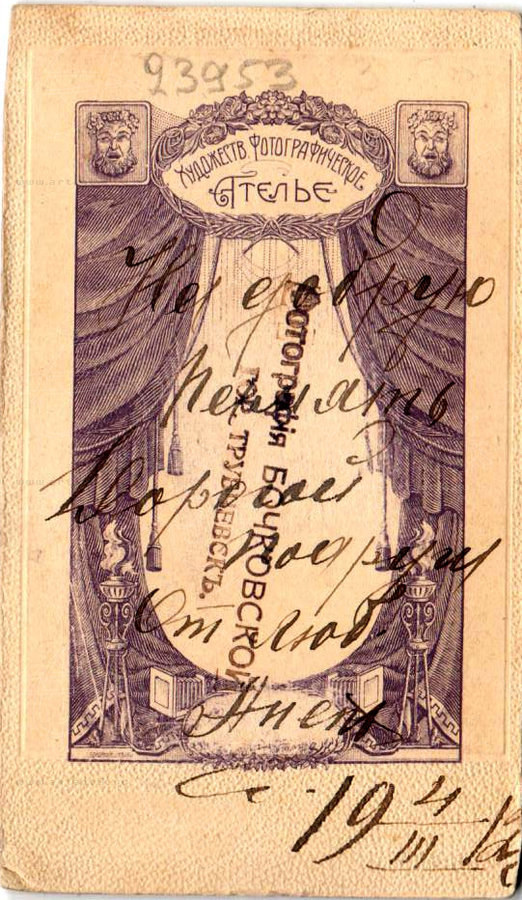 23953
Художеств. Фотографическое
Ателье
Фотографія Бочковской
гор. Трубчевскъ.
На добрую
память
дорогой
подруги
От люб.
Анеты
19 4/III 12